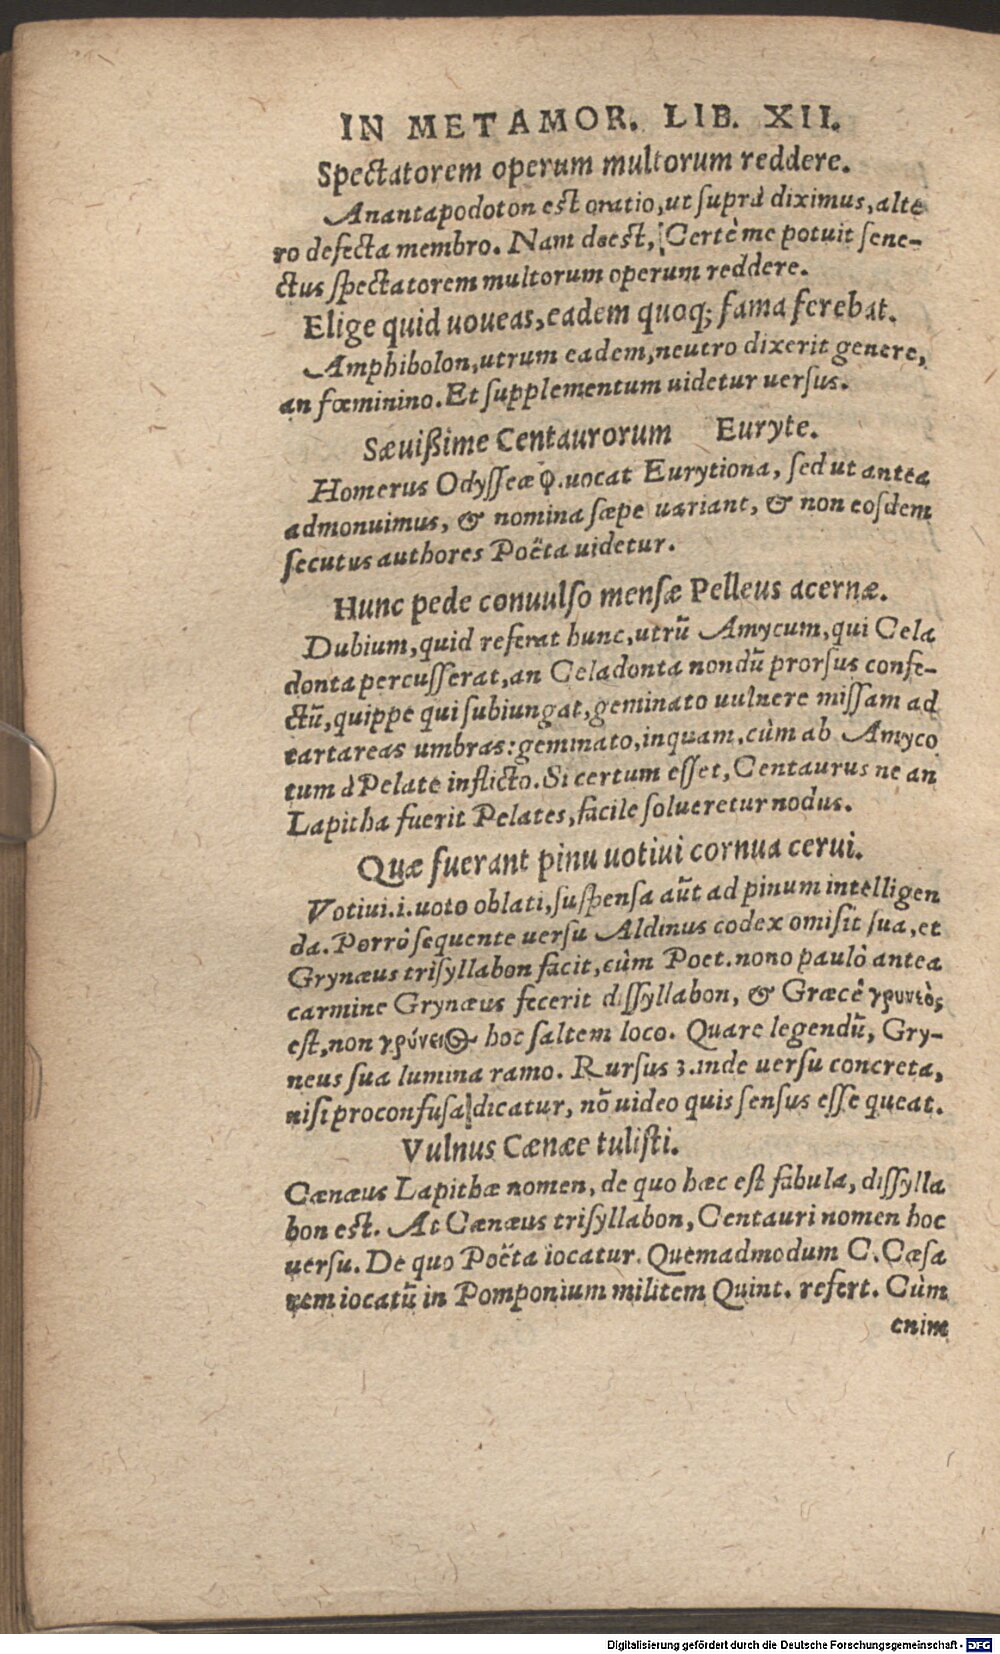 IN METAMOR. LIB. XII.
Spectatorem operum multorum reddere.
Anantapodoton est oratio, ut suprà diximus, alte
ro defecta membro. Nam deest, Certè me potuit sene-
ctus spectatorem multorum operum reddere.
Elige quid uoueas, eadem quoq; fama ferebat.
Amphibolon, utrum eadem, neutro dixerit genere,
an fœminino. Et supplementum uidetur uersus.
Sæuißime Centaurorum Euryte.
Homerus Odysseæ φ. uocat Eurytiona, sed ut antea
admonuimus, & nomina sæpe uariant, & non eosdem
secutus authores Poëta uidetur.
Hunc pede conuulso mensæ Pelleus acernæ.
Dubium, quid referat hunc, utrū Amycum, qui Cela
donta percusserat, an Celadonta nondū prorsus confe-
ctū, quippe qui subiungat, geminato uulnere missam ad
tartareas umbras: geminato, inquam, cùm ab Amyco
tum à Pelate inflicto. Si certum esset, Centaurus ne an
Lapitha fuerit Pelates, facile solueretur nodus.
Quæ fuerant pinu uotiui cornua cerui.
Votiui .i. uoto oblati, suspensa aūt ad pinum intelligen
da. Porrò sequente uersu Aldinus codex omisit sua, et
Grynæus trisyllabon facit, cùm Poet. nono paulò antea
carmine Grynæus fecerit dissyllabon, & Græcè γρυνεὸς
est, non γρύνειος hoc saltem loco. Quare legendū, Gry-
neus sua lumina ramo. Rursus 3. inde uersu concreta,
nisi pro confusa dicatur, nō uideo quis sensus esse queat.
Vulnus Cænæe tulisti.
Cænæus Lapithæ nomen, de quo hæc est fabula, dissylla
bon est. At Cænæus trisyllabon, Centauri nomen hoc
uersu. De quo Poëta iocatur. Quemadmodum C. Cæsa
rem iocatū in Pomponium militem Quint. refert. Cùm
enim
Digitalisierung gefördert durch die Deutsche Forschungsgemeinschaft - DFG